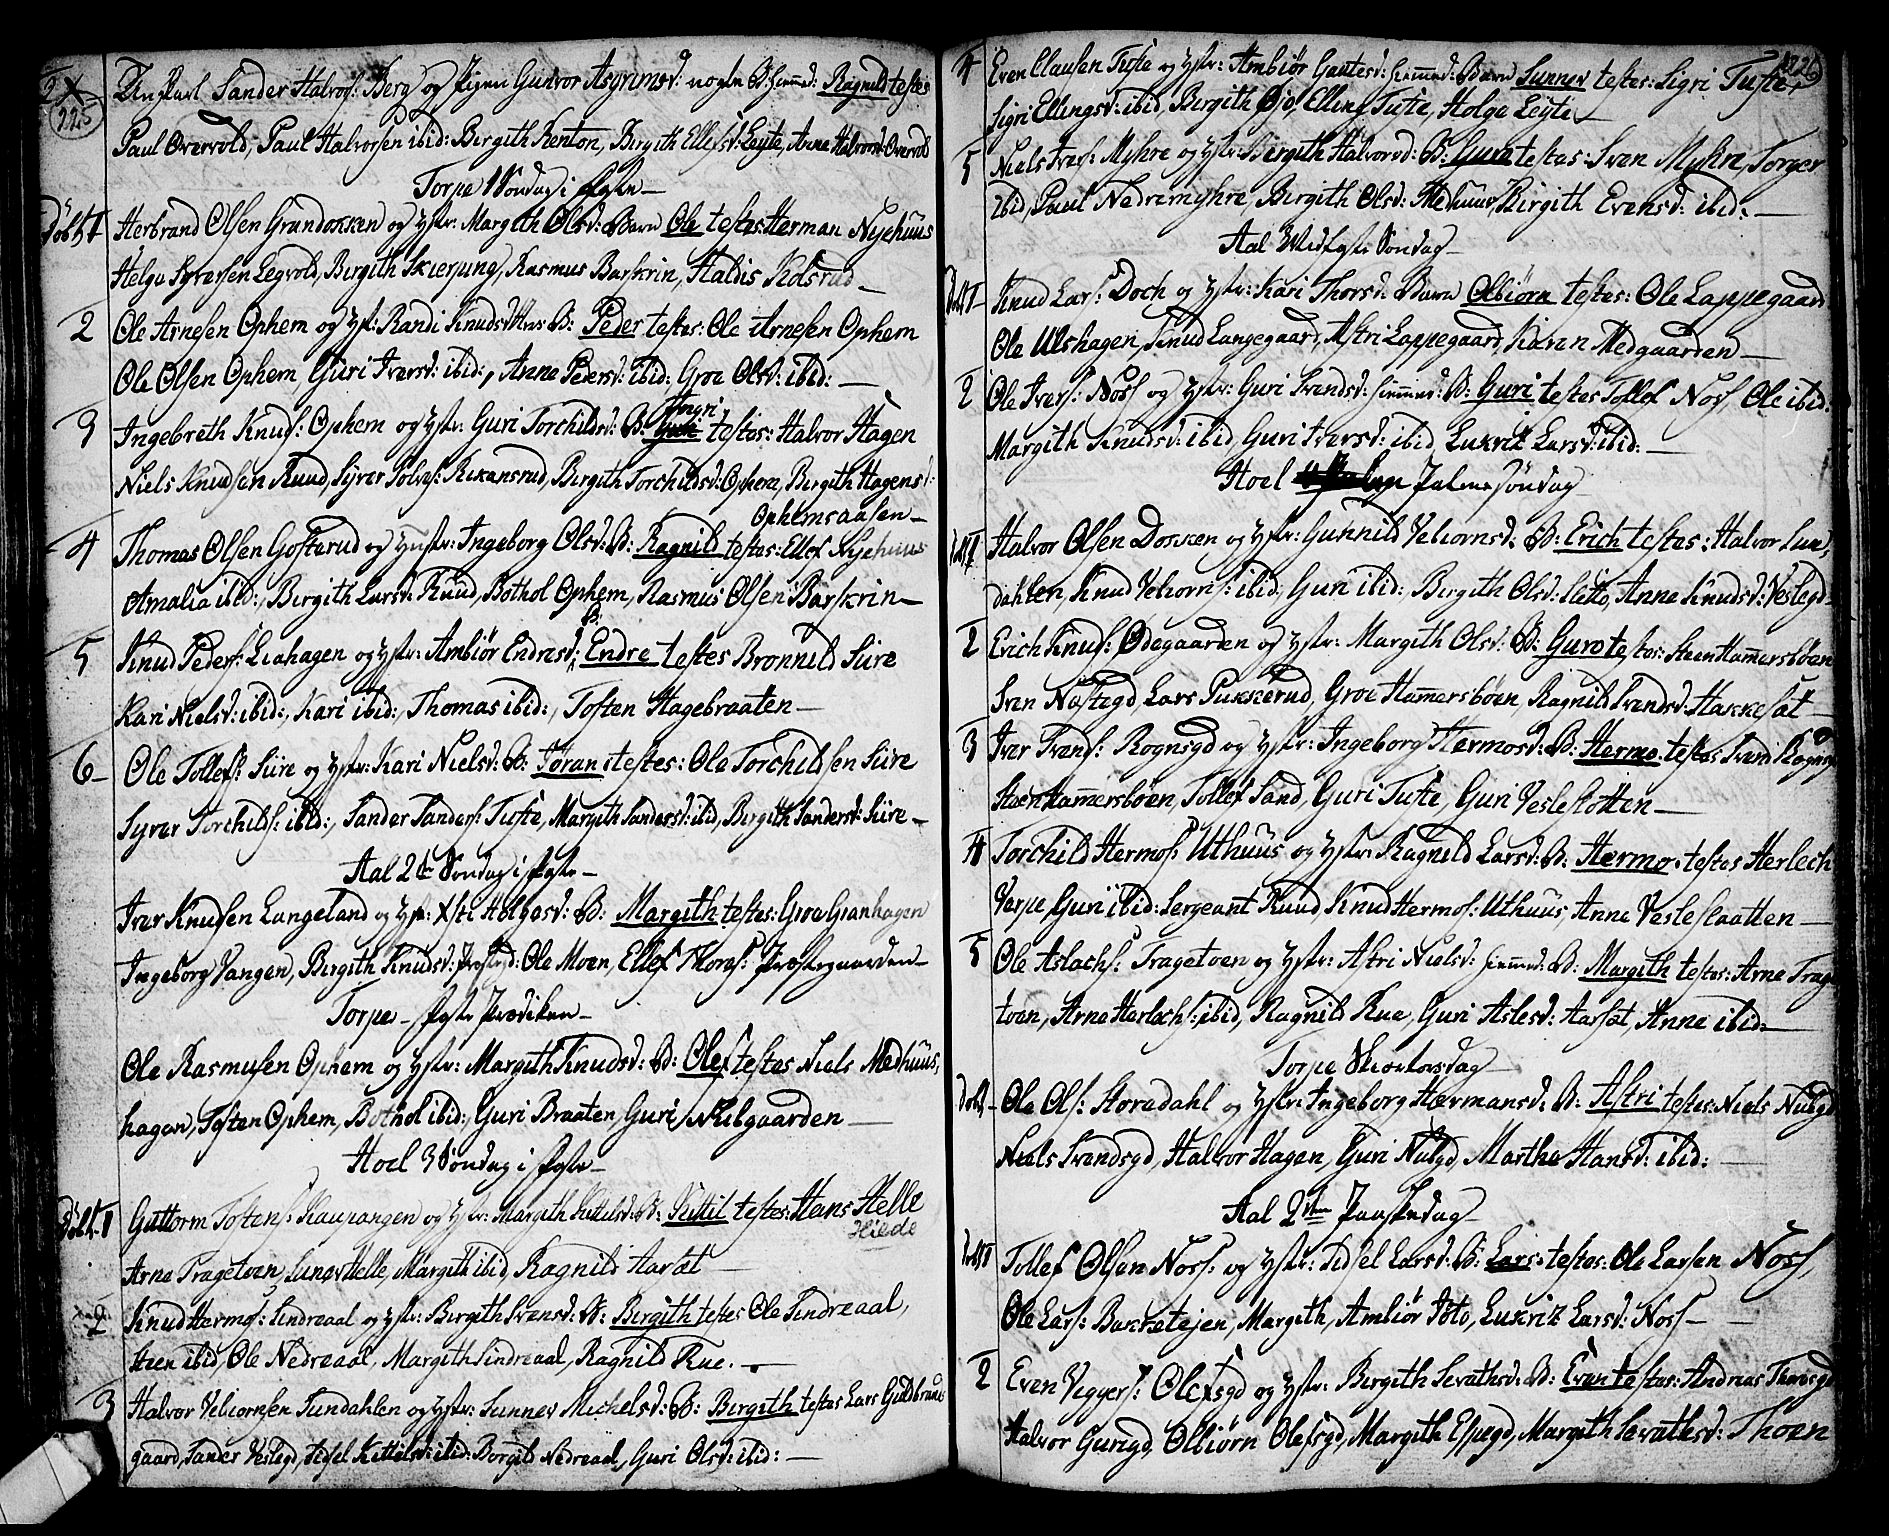 225
Ungkarl Sander Halvors: Berg og Pigen Gunvor Asgrimsd: B: hiemmed: Ragnild testes
Paul Overvold, Paul Halvorsen ibid: Birgith Kenton, Birgith Ellefsd: Leyte, Anne Halvorsd: Overvold
Torpe 1 Söndag i faste
Döbt 1 Herbrand Olsen Grandokken og hstr: Margith Olsd: Barn Ole testes: Herman Nyehuus
Helge Syversen Legvold, Birgith Skierping, Rasmus Barskrin, Haldis Kolsrud
2 Ole Arnesen Ophem og hst: Randi Knudsd: B: Peder testes: Ole Arnesen Ophem
Ole Olsen Ophem, Guri Iversd: ibid:, Anne Pedersd: ibid: Groe Olsd: ibid:
3 Ingebreth Knus: Ophem og hstr: Guri Torchildsd: B: Guri testes: Halvor Hagen
Niels Knudsen Ruud, Syver Rikansrud, Birgith Torchildsd: Ophem, Birgith Hagensd:
Ophemsaasen
4 Thomas Olsen Gosterud og hustr: Ingeborg Olsd: B: Ragnild testes: Ellef Nyehuus
Amalia ibid:, Birgith Larsd: Ruud, Bothol Ophem, Rasmus Olsen Barskrin
5 Knud Peders: Liahagen og hstr: Ambiör Endresd: B: Endre testes Bronnild Siire
Kari Nielsd: ibid:, Kari ibid:, Thomas ibid:, Tosten Hagebraaten
6 Ole Tollefs: Siire og hstr: Kari Nielsd: B: Töran testes: Ole Torchildsen Siire
Syver Torchilds: ibid:, Sander Sanders: Tufte, Margith Sandersd: ibid, Birgith Sandersd: Siire
Aal 2den Söndag i faste
Iver Knusen Langeland og hstr: Xsti Holgesd: B: Margith testes: Groe Granhagen
Ingeborg Vangen, Birgith Knudsd: Ole Moen, Ellef Thoras: Præstegaarden
Torpe faste Prædiken
Ole Rasmusen Ophem og hstr: Margith Knudsd: B: Olef testes Niels Medhuus,
hagen, Tosten Ophem, Bothol ibid: Guri Braaten, Guri Nubgaarden
Hoel 3 Söndag i faste
Döbt 1 Guttorm Tostens: Kaupangen og hstr: Margith Kittilsd: B: Kittil testes: Hans Helle
Hilde
Arne Tragetoen, Sunev Helle, Margith ibid Ragnild Aaræt
2 Knud Hermos: Sindreaal og hstr: Birgith Svensd: B: Birgith testes Ole Sindreaal,
Steen ibid, Ole Nedreaal, Margith Sindreaal, Ragnild Rue.
3 Halvor Veliornsen Sundahlen og hstr: Sunnev Michelsd: B: Birgith testes Lars Guldbrans
gaard, Sander Veslegd, Sidsel Kittilsd: ibid: Borgild Nedreaal, Guri Olsd: ibid:
226
4 Even Clausen Tufte og hstr: Ambiör Gautesd: hiemmed: Barn Sunnev testes: Sigri Tufte,
Sigri Ellingsd: ibid, Birgith Öjo, Elling Tufte, Holge Leyte
5 Niels Ivers: Myhre og hstr: Birgith Halvorsd: B: Guro testes: Sven Myhre, Torger
ibid, Paul Nedremyhre, Birgith Olsd: Medhuus, Birgith Evensd: ibid:
Aal Midfaste Söndag
Döbt 1 Knud Lars: Doch og hstr: Kari Thorsd: Barn Olbiörn testes: Ole Lappegaard
Ole Ulshagen, Knud Langegaard, Astri Lappegaard, Karen Medgaarden
2 Ole Ivers: Noss og hstr: Guri Svendsd: hiemmed: B: Guri testes Tollef Noss Ole ibid:
Margith Knudsd: ibid, Guri Iversd: ibid, Lukris Larsd: ibid:
Hoel Palme söndag
Döbt 1 Halvor Olsen Dokken og hstr: Gunnild Veliornsd: B: Erich testes: Halvor Sun,
dahlen, Knud Veliorns: ibid, Guri ibid: Birgith Olsd: Slette, Anne Knudsd: Veslegd
2 Erich Knus: Ödegaarden og hstr: Margith Olsd: B: Guro testes: Steen Hammersböen
Sven Nöstegd, Lars Pukkerud, Groe Hammersböen, Ragnild Svendsd: Hakkesæt
3 Iver Svens: Rognsgd og hstr: Ingeborg Hermosd: B: Hermo testes Svend Rognsgd
Steen Hammersböen, Tollef Sand, Guri Tufte, Guri Vesleslotten
4 Torchild Hermos: Uthuus og hstr: Ragnild Larsd: B: Hermo testes Herlech
Varpe, Guri ibid: Sergeant Ruud, Knud Hermos: Uthuus, Anne Vesleslaatten
5 Ole Aslachs: Tragetoen og hstr: Astri Nielsd: hiemmed: B: Margith testes: Arne Trage
toen, Arne Herlechs: ibid, Ragnild Rue, Guri Aslesd: Aarsæt, Anne ibid:
Torpe Skiertorsdag
Döbt Ole Ols: Storedahl og hstr: Ingeborg Hermansd: B: Astri testes: Niels Nubgd
Niels Svendsgd, Halvor Hagen, Guri Nubgd, Marthe Hansd: ibid:
Aal 2den Paaskedag
Döbt 1 Tollef Olsen Noss: og hstr: Sidsel Larsd: B: Lars testes: Ole Larsen Noss,
Ole Lars: Bakketejen, Margith, Ambiör Loto, Lukris Larsd: Noss
2 Even Viggers: Olefsgd og hstr: Birgith Sevathsd: B: Even testes: Andreas Thoresgd
Halvor Gurigd, Olbiörn Olefsgd, Margith Espegd, Margith Sevathsd: Thoen